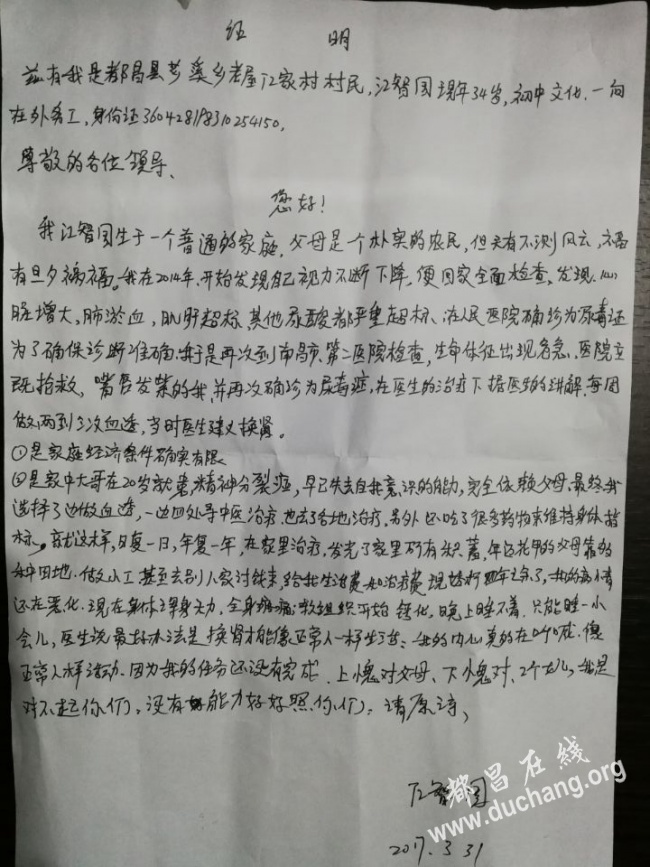 证 明
兹有我是都昌县芗溪乡老屋江家村村民,江智国现年34岁,初中文化.一向
在外务工,身份证360428198310254150.
尊敬的各位领导、
您好!
我江智国生于一个普通的家庭.父母是个朴实的农民,但天有不测风云,祸
有旦夕祸福。我在2014年.开始发现自己视力不断下降,便回家全面检查.发现.心
脏增大,肺淤血,肌酐超标.其他尿酸都严重超标、在人民医院确诊为尿毒症
为了确保诊断准确.于是再次到南昌市.第二医院检查,生命体征出现危急.医院立
既抢救、嘴唇发紫的我,并再次确诊为尿毒症,在医生的治疗下据医生的讲解.每周
做两到3次血透,当时医生建议换肾。
①是家庭经济条件确实有限
②是家中大哥在20岁就患精神分裂症,早已失去自我意识的能力,完全依赖父母.最终我
选择了边做血透,一边四处寻中医治疗,也去了各地治疗.另外还吃了很多药物来维持身体指
标。就这样,日复一日,年复一年,在家里治疗,发光了家里所有积蓄,年迈花甲的父母靠
种田地.做小工甚至去别人家讨钱来给我生活费和治疗费.现透析四年之余了,我的病情
还在恶化.现在身体浑身无力,全身疼痛,软组织开始钙化,晚上睡不着.只能眯一小
会儿,医生说最好办法是换肾才能像正常人一样生活.我的内心真的在呐喊.像
正常人一样活动.因为我的任务还没有完成.上愧对父母、下愧对、2个女儿,我是
对不起你们.没有能力好好照你们.请原谅、
江智国
2017.3.31
都昌在线
www.duchang.org